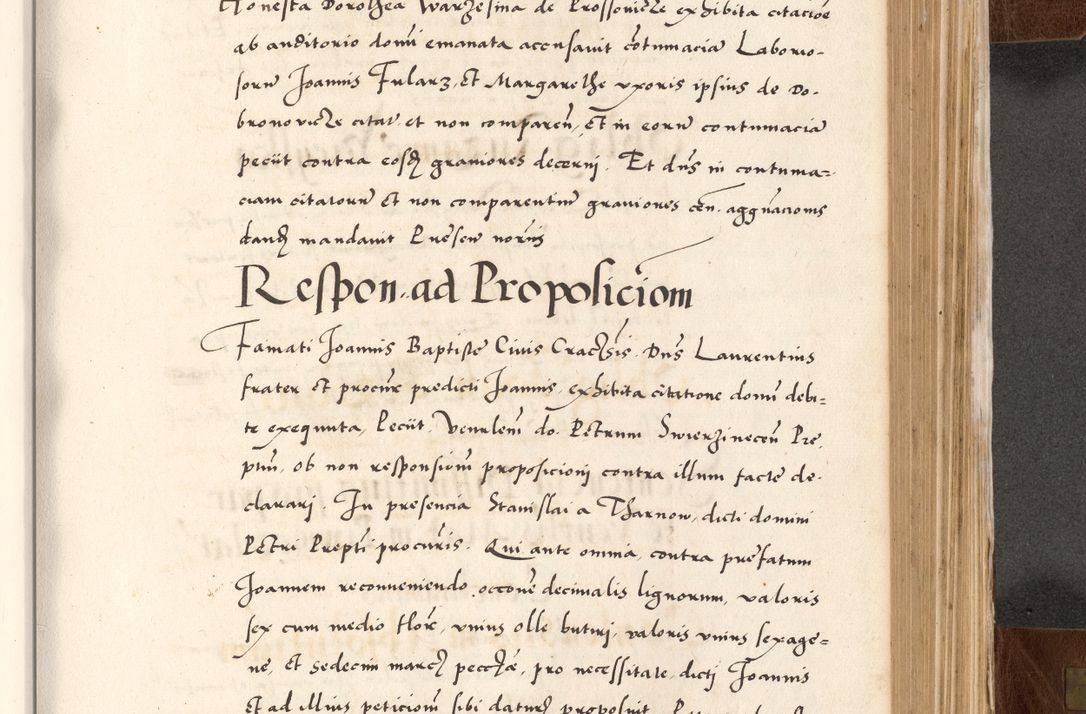 Honesta Dorothea Warzesina de Prossovicze exhibita citacioe
ab auditorio domi emanata accusavit cotumacia Laborio-
soru Joannis Fularz, et Margarethe uxoris ipsius de Do-
bronovicze citat et non comparen, et in eoru contumacia
peciit contra eosd graviores decerni. Et dns in contuma=
ciam citatoru et non comparentiu graviores cen. aggravacionis
dand mandavit Presen noriis
Respon. ad Proposiciom
Famati Joannis Baptiste Civis Craccsis. Dns Laurentius
frater et procure predicti Joannis, exhibita citatione domi debi=
te exequuta, Peciit. Venrlem do. Petrum Swierzinecen Pre,
ptum, ob non responsiom proposicioni contra illum facte de-
clarari. In presencia Stanislai a Tharnow, dicti domini
Petri Prepti procuris. Qui ante omnia, contra prefatum
Joannem reconveniendo, occone decimalis lignorum, valoris
sex cum medio flore, unius olle butiri, valoris unius sexage=
ne, et sedecim marc pecciae, pro necessitate, dicti Joannis
et ad illius peticiom sibi datur proposuit.